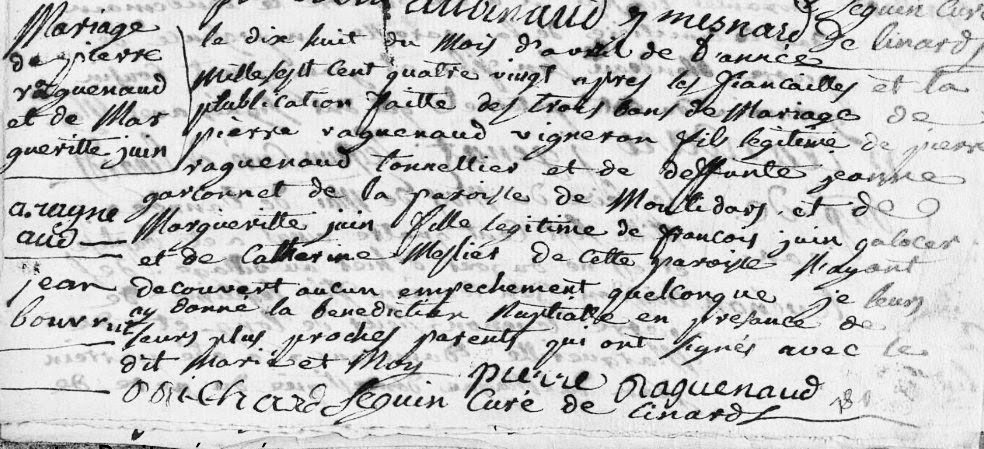 aubinaud mesnard Seguin Curé
de linards
Mariage
de pierre
raguenaud
et de Mar
gueritte juin
le dix huit du Mois d'avril de L'année
Mille sept cent quatre vingt apres les fiancailles et la
publication faitte des trois bans de Mariage de
pierre raguenaud vigneron fils legitime de pierre
raguenaud tonnellier et de deffunte jeanne
garconnet de la paroisse de Moulidars et de
Margueritte juin fille legitime de francois juin galocer
et de Catherine Meslier de cette paroisse N'ayant
decouvert aucun empechement quelconque je leurs
ay donné la benediction Nuptialle en presance de
leurs plus proches parents qui ont signés avec le
dit Marié et Moy
a. ragne
aud
jean
bouvrut
pierre Raguenaud
bouchard Seguin Curé de Linards